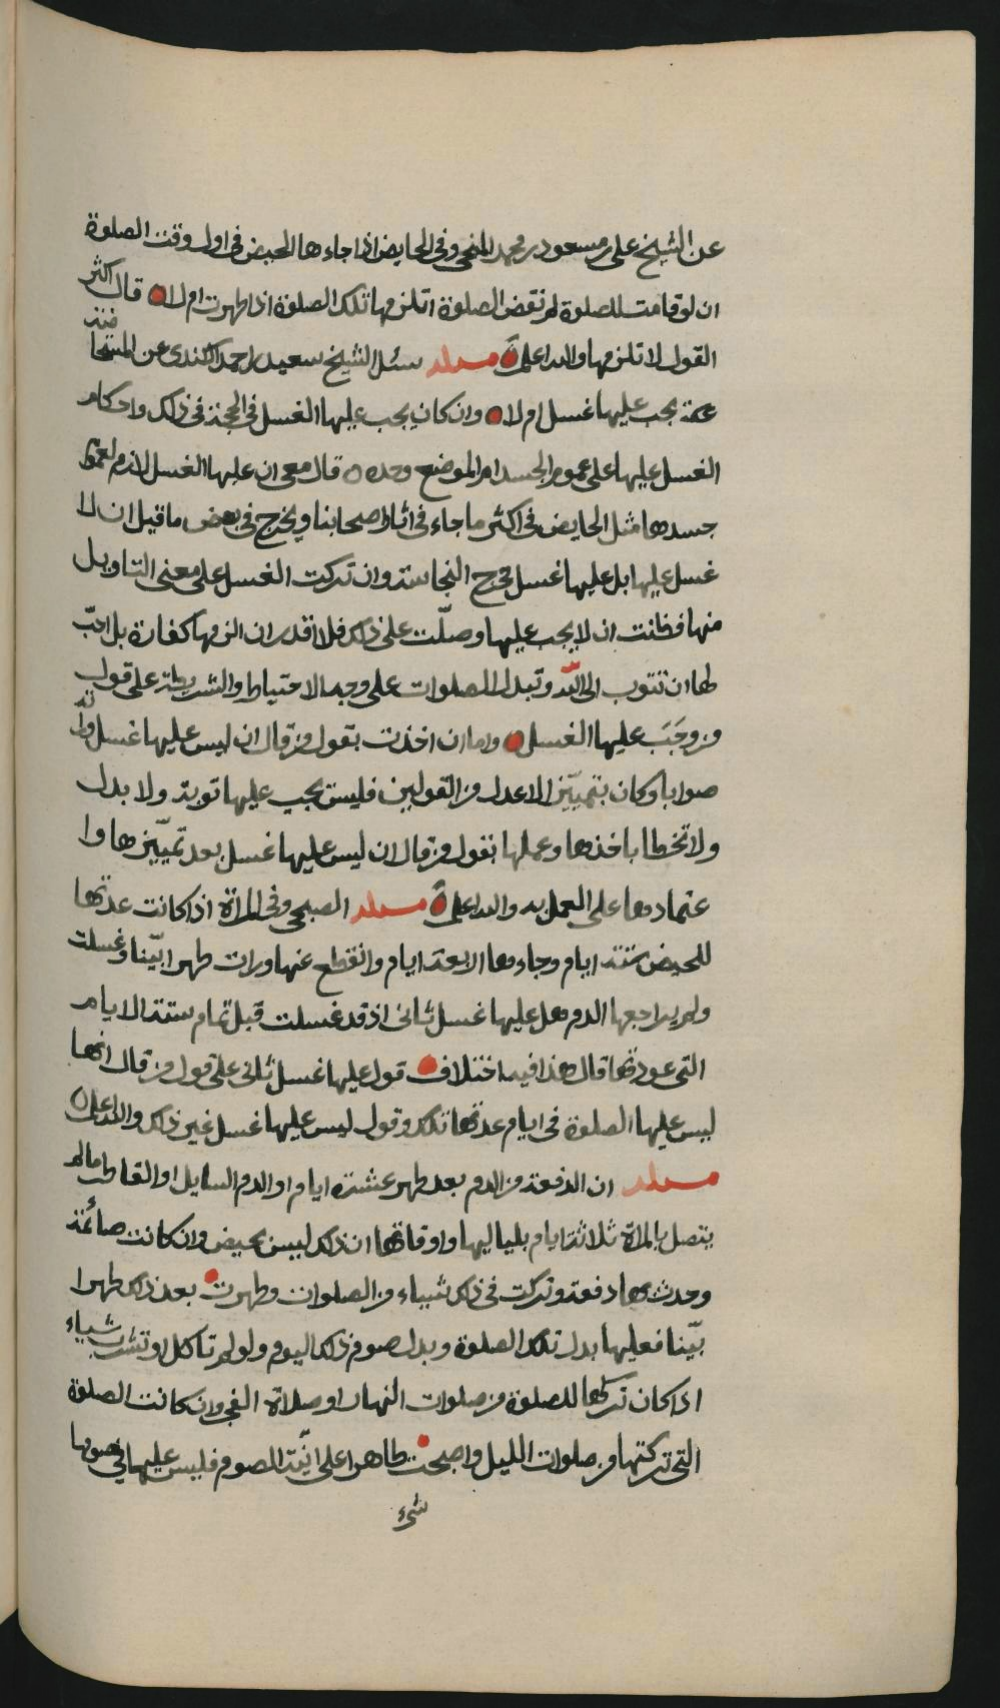 عن الشيخ على بن مسعود بن محمد المنحي وفي الحايض اذا جاءها الحيض في اول وقت الصلوة
ان لو قامت للصلوة لم تقض الصلوة اتلزمها تلك الصلوة اذا طهرت ام لا قال اكثر
القول لا تلزمها والله اعلم مسئلة سئل الشيخ سعيد بن احمد الكندى عن المستحا
ضة يجب عليها غسل ام لا وان كان يجب عليها الغسل في الحجة في ذلك واحكام
الغسل عليها على عموم الجسد ام الموضع وحده قال معى ان عليها الغسل لازم لعموم
جسدها مثل الحايض في اكثر ما جاء في اثار اصحابنا ويخرج في بعض ما قيل ان لا
غسل عليها بل عليها غسل مخرج النجاسة وان تركت الغسل على معنى التاويل
منها فظنت ان لا يجب عليها وصلّت على ذلك فلا اقدر ان الزمها كفارة بل احبّ
لها ان تتوب الى الله وتبدل الصلوات على وجه الاحتياط والشريطة على قول
من وجَبَ عليها الغسل واما ان اخذت بقول من قال ان ليس عليها غسل وظنته
صوابا وكان بتمييز الاعدل من القولين فليس يجب عليها توبة ولا بدل
ولا تخطا باخذها وعملها بقول من قال ان ليس عليها غسل بعد تمييزها وا
عتمادها على العمل به والله اعلم مسئلة الصبحي وفي المراة اذا كانت عدتها
للحيض ستة ايام وجاءها اربعة ايام وانقطع عنها ورات طهرا بيّنا وغسلت
ولم يراجعها الدم هل عليها غسل ثانى اذ قد غسلت قبل تمام ستة الايام
التى عودتها قال هذا فيه اختلاف قول عليها غسل ثانى على قول من قال انها
ليس عليها الصلوة في ايام عدتها تلك وقول ليس عليها غسل غير ذلك والله اعلم
مسئلة ان الدفعة من الدم بعد طهر عشرة ايام او الدم السايل او القاطر ما لم
يتصل بالمراة ثلاثة ايام بلياليها واوقاتها ان ذلك ليس بحيض وان كانت صائمة
وحدث بها دفعة وتركت في ذلك شيياء من الصلوات وطهرت بعد ذلك طهرا
بيّنا فعليها بدل تلك الصلوة وبدل صوم ذلك اليوم ولو لم تاكل او تشرب شيياء
اذا كان تركها للصلوة من صلوات النهار او صلاة الفجر وان كانت الصلوة
التى تركتها من صلوات الليل واصبحت طاهرا على نيّة الصوم فليس عليها في صومها
شيء